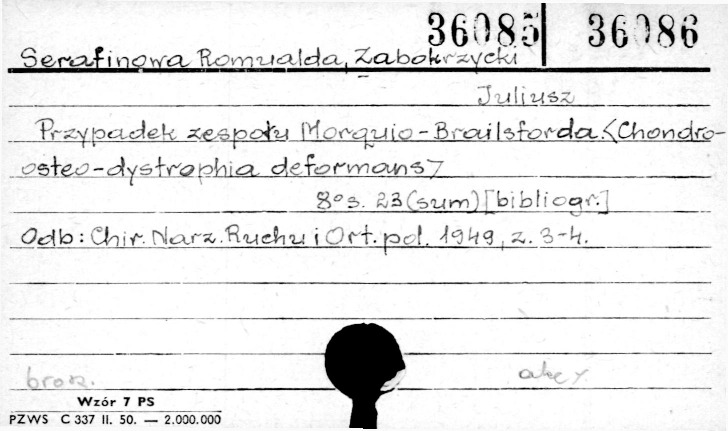 36085 36086
Serafinowa Romualda, Zabokrzycki
Juliusz
Przypadek zespołu Morquio-Brailsforda. <Chondro-
osteo-dystrophia deformans>
8° s. 23 (sum) [bibliogr.]
Odb: Chir. Narz. Ruchu i Ort. pol. 1949, z. 3-4.
brosz.
Wzór 7 PS
PZWS C 337 II. 50. — 2.000.000